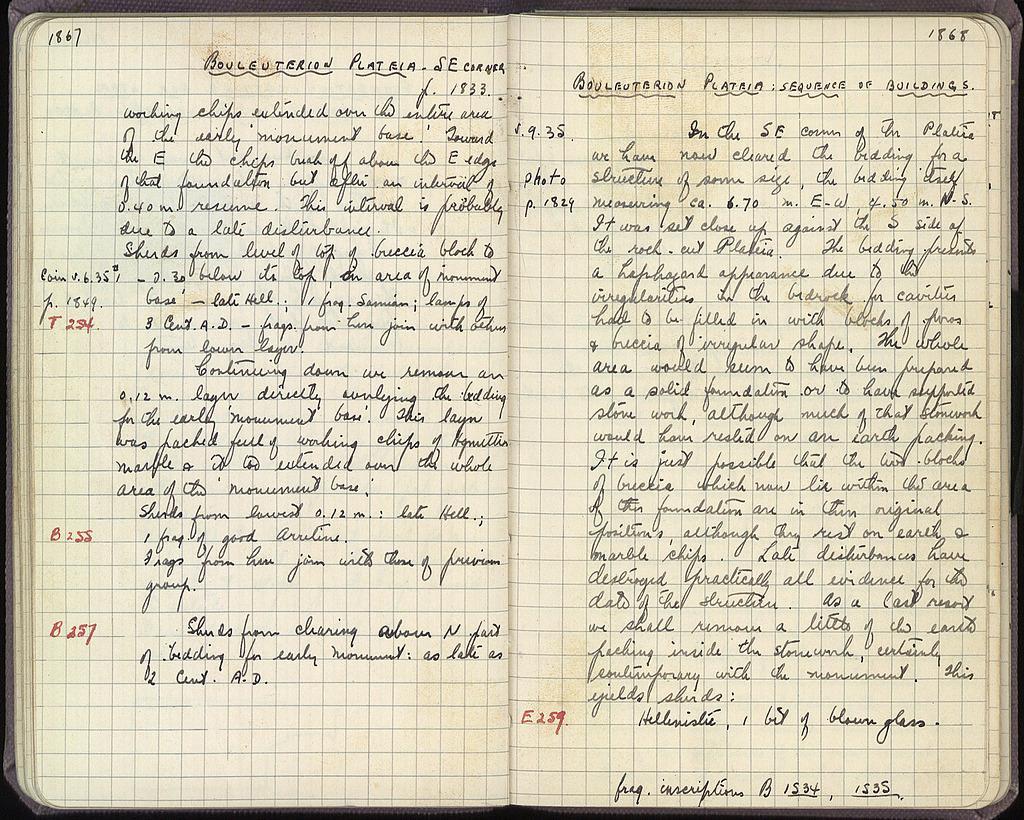 1867
BOULEUTERION PLATEIA - SE CORNER
f. 1833.
working chips extended over the entire area
of the early 'monument base'. Toward
the E the chips break off above the E edge
of that foundation but after an interval of
0.40 m. resume. This interval is probably
due to a late disturbance.
Sherds from level of top of breccia block to
Coin v.6.35 #1 - 0.30 below its top in area of monument
p. 1849. base' - late Hell.; 1 frag. Samian; lamps of
T 254 3 Cent. A.D. - frags. from here join with others
from lower layer.
Continuing down we remove an
0.12 m. layer directly overlying the bedding
for the early 'monument base'. This layer
was packed full of working chips of Hymettian
marble & it too extended over the whole
area of the 'monument base'.
Sherds from lowest 0.12 m.: late Hell.;
B 255 1 frag of good Arretine.
Frags from here join with those of previous
group.
B 257 Sherds from clearing above N. part
of bedding for early monument: as late as
2 Cent. A.D.
1868
BOULEUTERION PLATEIA: SEQUENCE OF BUILDINGS.
v.9.35. In the SE corner of the Plateia
we have now cleared the bedding for a
photo structure of some size, the bedding itself
p. 1829 measuring ca. 6.70 m. E-W, 4.50 m. N-S.
It was set close up against the S side of
the rock-cut Plateia. The bedding presents
a haphazard appearance due to the
irregularities in the bedrock for cavities
had to be filled in with blocks of poros
& breccia of irregular shape. The whole
area would seem to have been prepared
as a solid foundation or to have supported
stone work, although much of that stonework
would have rested on an earth packing.
It is just possible that the two blocks
of breccia which now lie within the area
of this foundation are in their original
positions although they rest on earth &
marble chips. Late disturbances have
destroyed practically all evidence for the
date of the structure. As a last resort
we shall remove a little of the earth
packing inside the stonework, certainly
contemporary with the monument. This
yields sherds:
E 259. Hellenistic, 1 bit of blown glass.
frag. inscriptions B 1534, 1535.